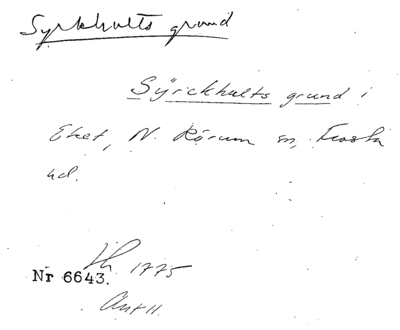 Syrkhults grund
Sÿrckhults grund i
Eket, N. Rörum sn, Frosta
hd.
Lh 1775
Nr 6643.
Akt 11.